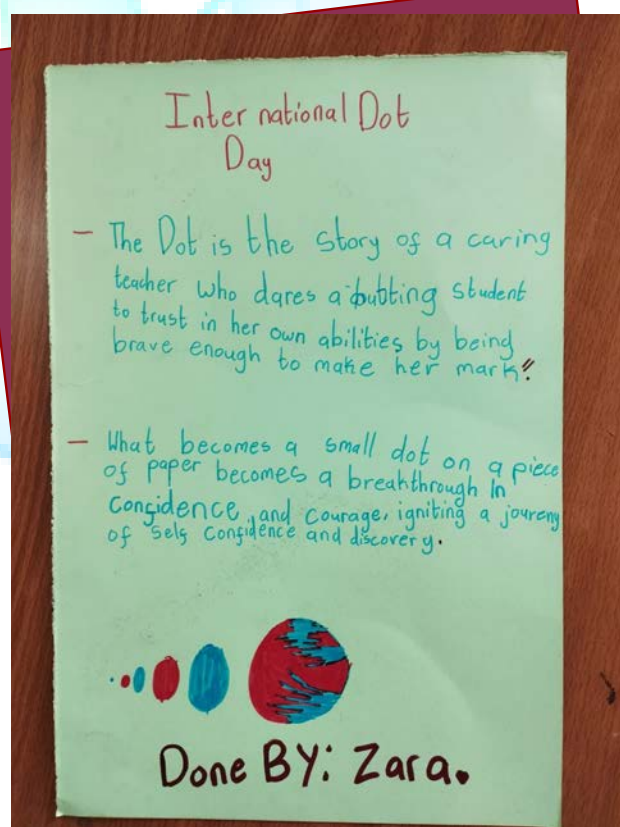 International Dot
Day
- The Dot is the story of a caring
teacher who dares a dubting student
to trust in her own abilities by being
brave enough to make her mark!!
- What becomes a small dot on a piece
of paper becomes a breakthrough In
Confidence, and Courage, igniting a joureny
of self Confidence and discovery.
Done BY: Zara.